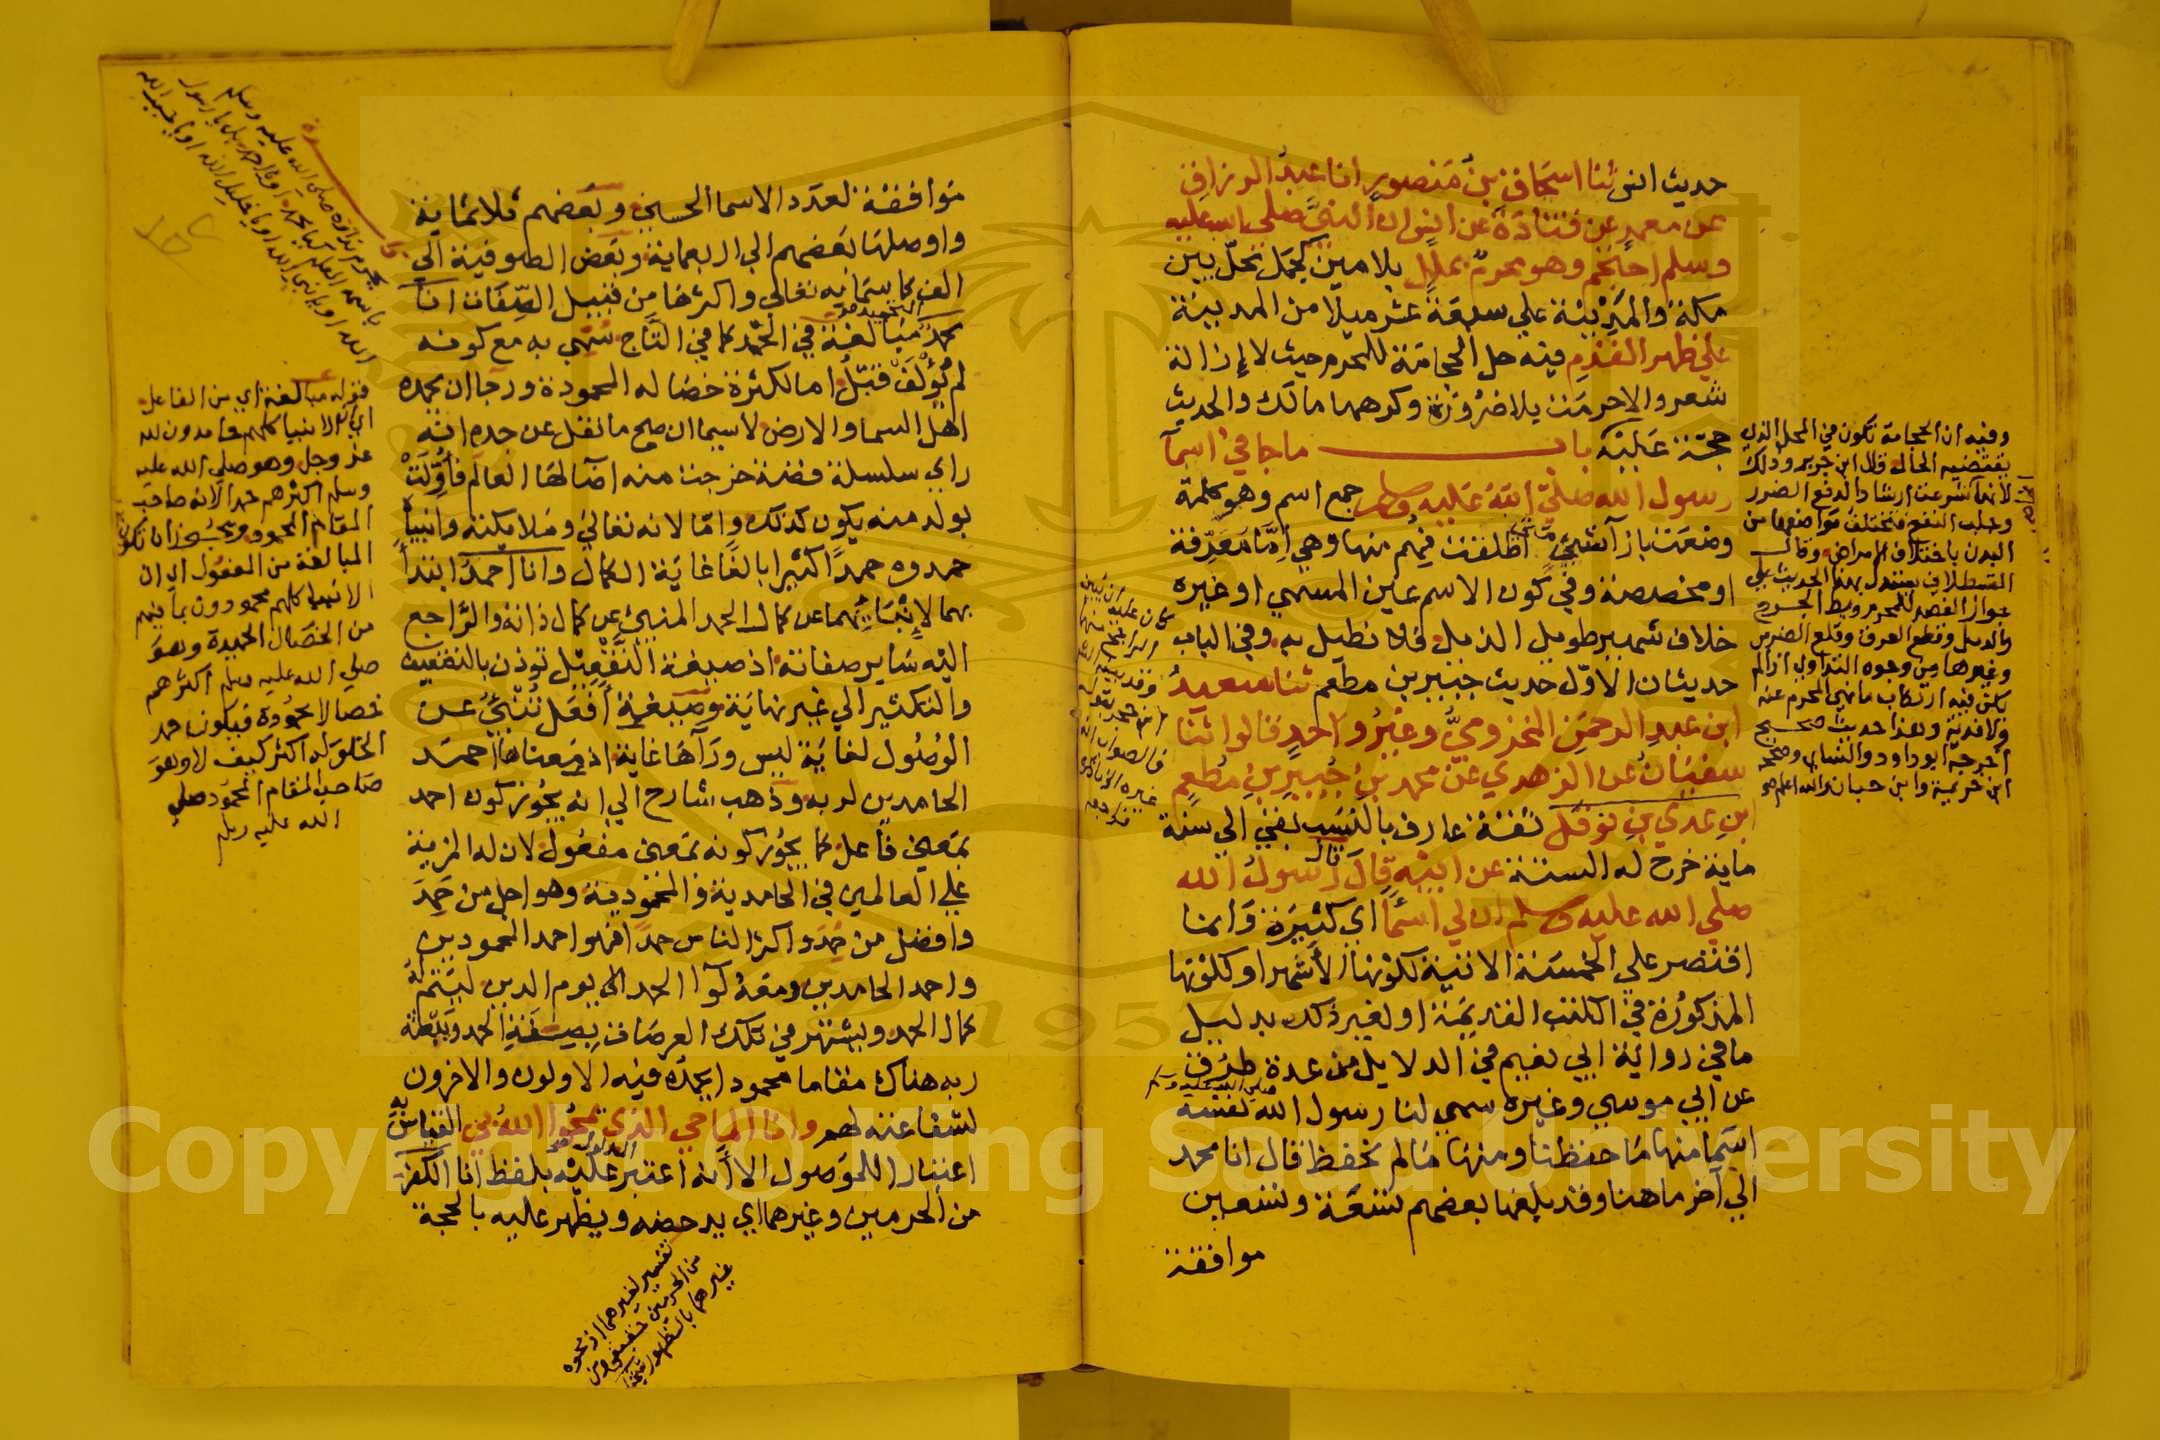 حديث انس ثنا اسحاق بن منصور انا عبد الرزاق
عن معمر عن قتادة عن انس ان النبي صلى الله عليه
وسلم احتجم وهو محرم بملل بلامين كجمل محل بين
مكة والمدينة على سبعة عشر ميلا من المدينة
على ظهر القدم فيه حل الحجامة للمحرم حيث لا ازالة
شعر والا حرمت بلا ضرورة وكرهها مالك والحديث
حجة عليه باب ما جاء في اسما
رسول الله صلى الله عليه وسلم جمع اسم وهو كلمة
وضعت بازآ شيء متى اطلقت فهم منها وهي اما معرفة
او مخصصة وفي كون الاسم عين المسمى او غيره
خلاف شهير طويل الذيل فلا نطيل به وفي الباب
حديثان الاول حديث جبير بن مطعم ثنا سعيد
ابن عبد الرحمن المخزومي وغير واحد قالوا ثنا
سفيان عن الزهري عن محمد بن جبير بن مطعم
ابن عدي بن نوفل ثقة عارف بالنسب بقي الى سنة
ماية خرج له الستة عن ابيه قال قال رسول الله
صلى الله عليه وسلم ان لي اسمآ اي كثيرة وانما
اقتصر على الخمسة الاتية لكونها الأشهر او كلونها
المذكورة في الكتب القديمة او لغير ذلك بدليل
ما في رواية ابي نعيم في الدلايل من عدة طرق
عن ابي موسى وغيره سمى لنا رسول الله صلى الله عليه وسلم نفسه
اسما منها ما حفظنا ومنها ما لم نحفظ قال انا محمد
الى آخر ما هنا وقد بلغها بعضهم تسعة وتسعين
موافقة
وفيه ان الحجامة تكون في المحل الذي
يقتضيه الحال قال ابن جرير وذلك
لانها شرعت ارشادا لدفع الضرر
وجلب النفع فتختلف مواضعها من
البدن باختلاف الامراض وقال
القسطلاني يستدل بهذا الحديث على
جواز الفصد للمحرم وبط الجرح
والدمل وقطع العرق وقلع الضرس
وغيرها من وجوه التداوي اذا لم
يكن فيه ارتكاب ما نهي المحرم عنه
ولا فدية وهذا حديث صحيح
اخرجه ابو داود والنساي وصححه
ابن خزيمة وابن حبان والله اعلم
موافقة لعدد الاسما الحسنى وبعضهم ثلاثماية
واوصلها بعضهم الى اربعماية وبعض الصوفية الى
الف كاسمائه تعالى واكثرها من قبيل الصفات انا
محمد مبالغة في الحمد كما في التاج سمي به مع كونه
لم يؤلف قبل اما لكثرة خصاله المحمودة ورجا ان يحمده
اهل السما والارض لاسيما ان صح ما نقل عن جده انه
راى سلسلة فضة خرجت منه اضآ لها العالم فأولت
بولد منه يكون كذلك واما لانه تعالى وملايكته وانبيآ
حمدوه حمدا كثيرا بالغا غاية الكمال وانا احمد ابتدأ
بهما لإنبائهما عن كمال الحمد المنبئ عن كمال ذاته والراجع
اليه ساير صفاته اذ صيغة التفعيل توذن بالتضعيف
والتكثير الى غير نهاية وصيغة أفعل تنبئ عن
الوصول لغاية ليس ورآها غاية اذ معناها احمد
الحامدين لربه وذهب شارح الى انه يجوز كون احمد
بمعنى فاعل كما يجوز كونه بمعنى مفعول لان له المزية
على العالمين في الحامدية والمحمودية وهو اجل من حمد
وافضل من حمد واكثر الناس حمدا فهو احمد المحمودين
واحمد الحامدين ومعه لوآ الحمد الى يوم الدين ليتم له
كمال الحمد ويشتهر في تلك العرصات بصفة الحمد ويبعثه
ربه هناك مقاما محمودا يحمده فيه الاولون والاخرون
لشفاعته لهم وانا الماحي الذي يمحو الله بي القياس به
اعتبارا للموصول الا أنه اعتبر المدلول عليه بلفظ انا الكفر
من الحرمين وغيرهما اي يدحضه ويظهر عليه بالحجة
قوله مبالغة اي من الفاعل
اي الانبيا كلهم حامدون لله
عز وجل وهو صلى الله عليه
وسلم اكثرهم حمدا لانه صاحب
المقام المحمود ويحتمل ان تكون
المبالغة من المفعول اي ان
الانبيا كلهم محمودون بما فيهم
من الخصال الحميدة وهو
صلى الله عليه وسلم اكثرهم
خصالا محمودة فيكون حمد
الخلق له اكثر كيف لا وهو
صاحب المقام المحمود صلى
الله عليه وسلم
Copyright © King Saud University
1957